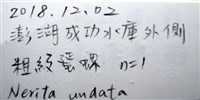 2018.12.02
澎湖成功水庫外側
粗紋蜑螺 n=1
Nerita undata